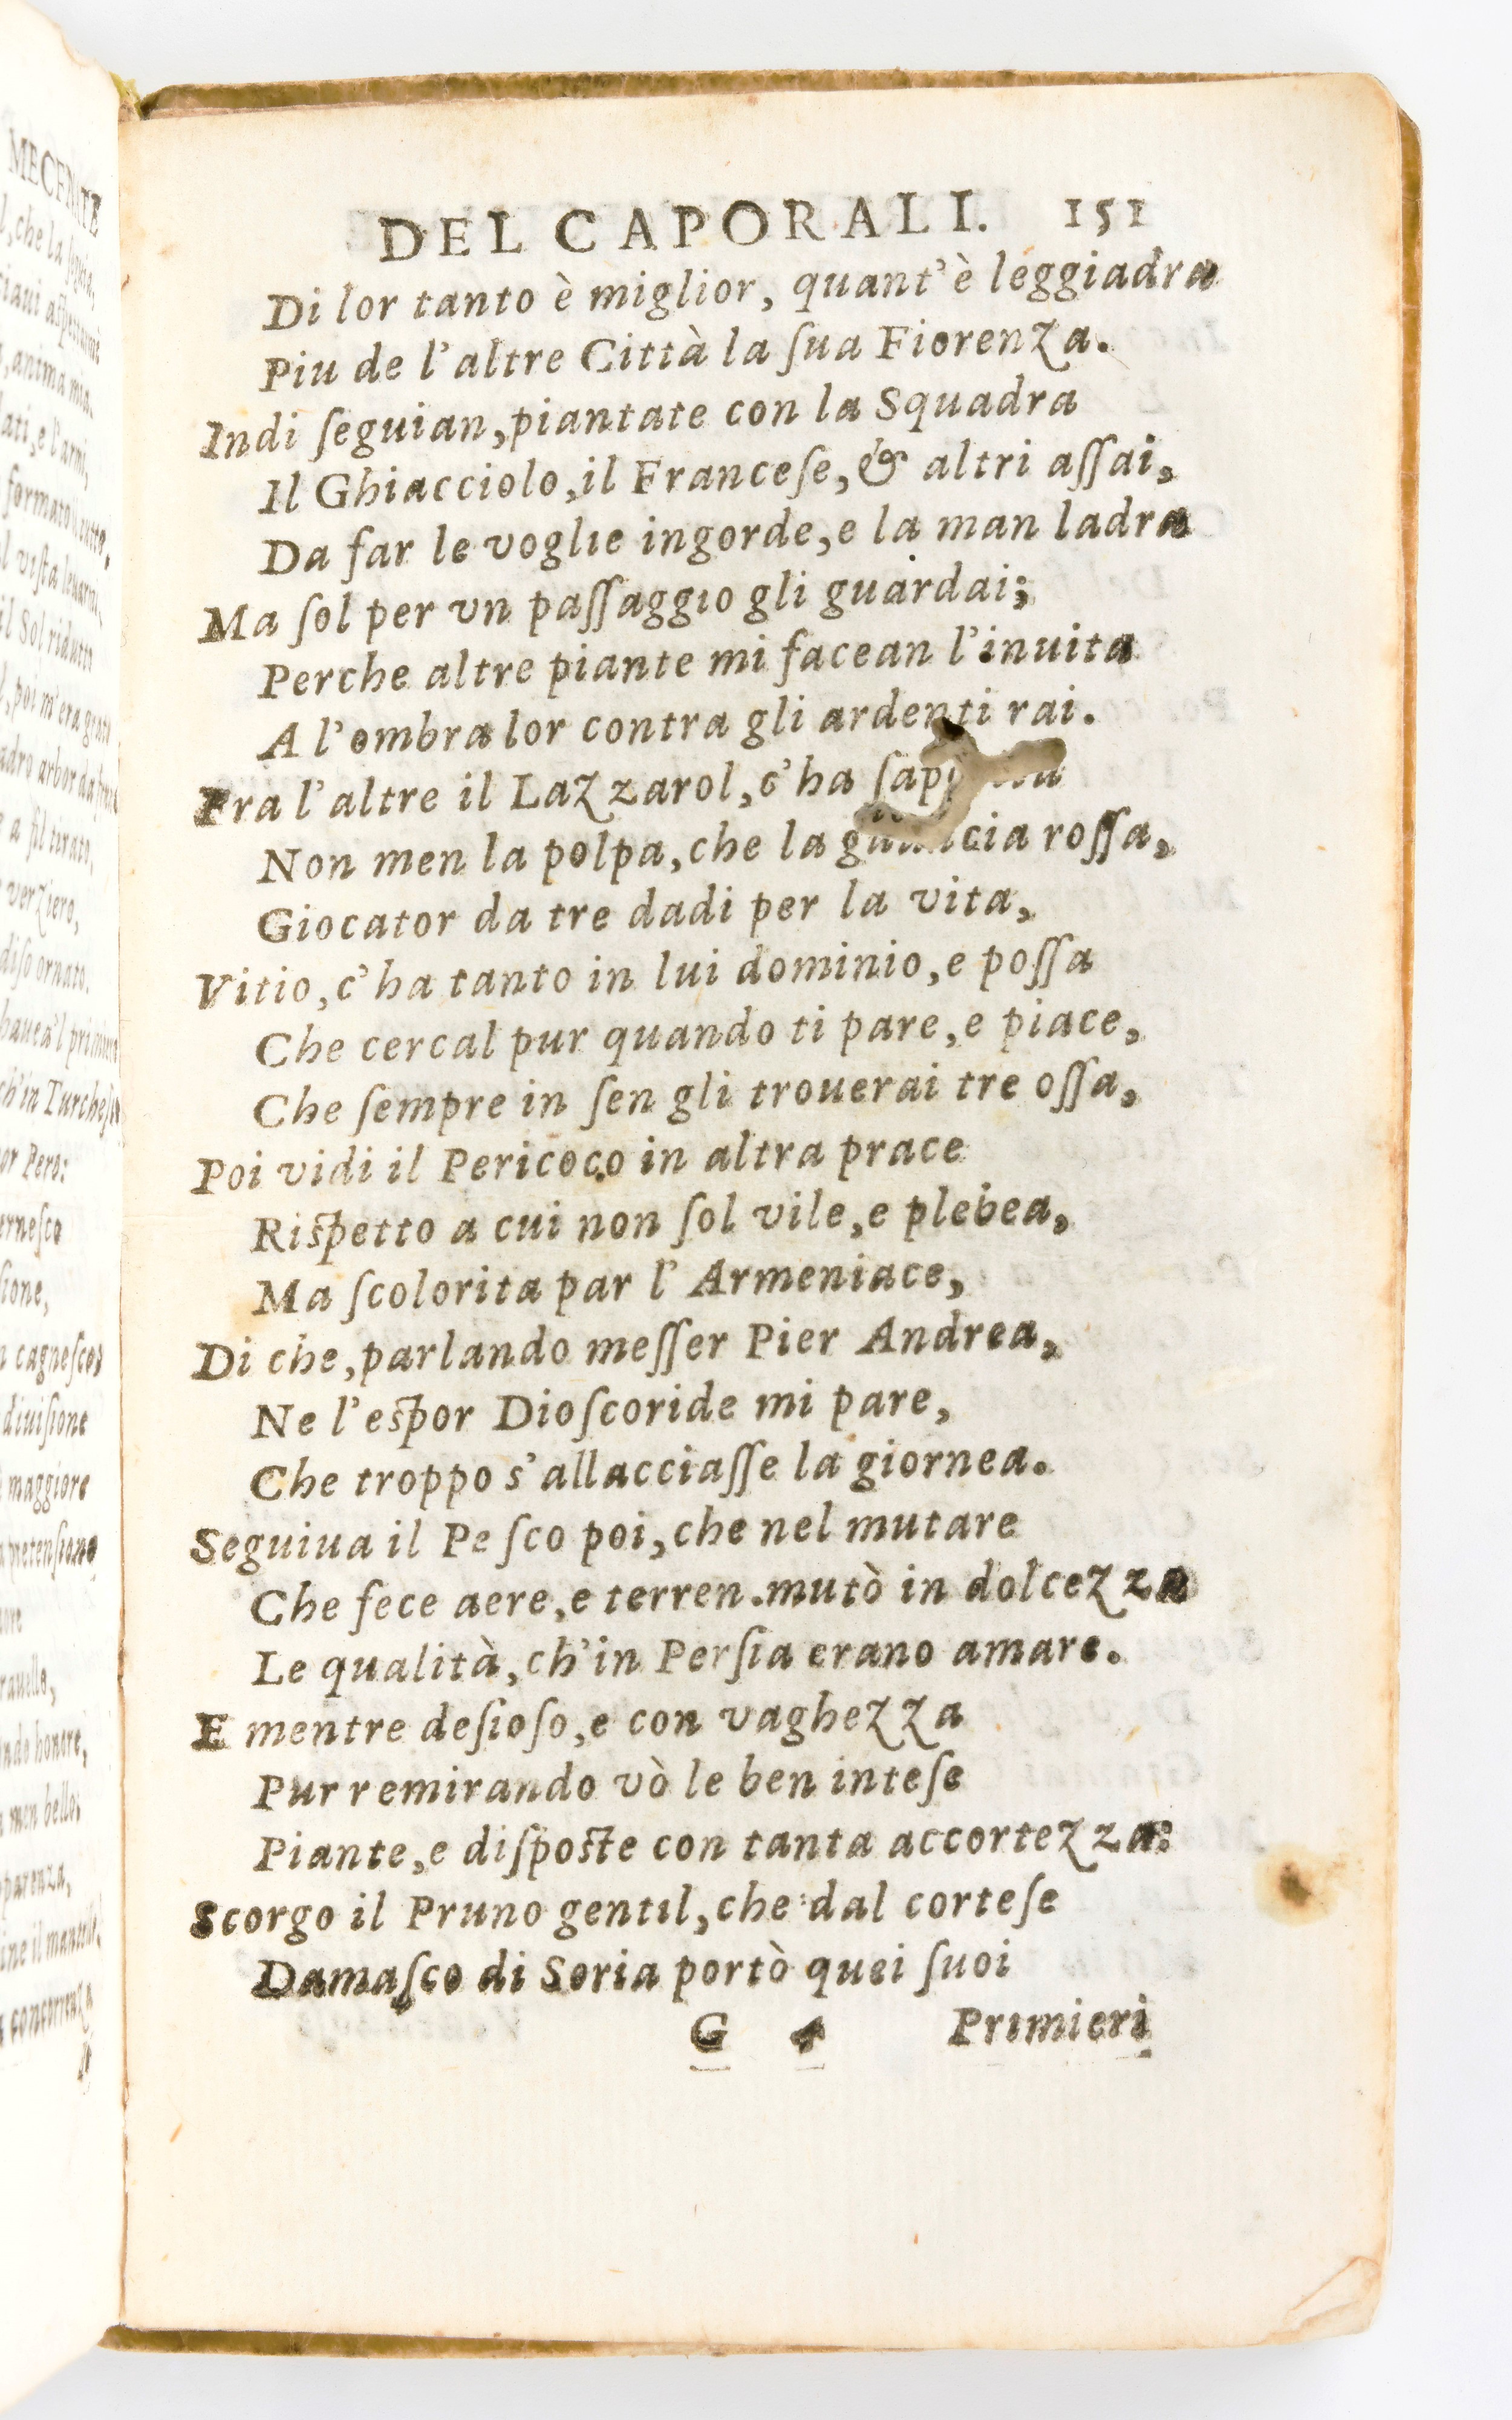 DEL CAPORALI. 151
Di lor tanto è miglior, quant'è leggiadra
Piu de l'altre Città la ſua Fiorenza.
Indi ſeguian, piantate con la Squadra
Il Ghiacciolo, il Franceſe, & altri aſſai,
Da far le voglie ingorde, e la man ladra
Ma ſol per vn paſſaggio gli guardai;
Perche altre piante mi facean l'inuita
A l'ombra lor contra gli ardenti rai.
Fra l'altre il Lazzarol, c'ha
Non men la polpa, che la roſſa,
Giocator da tre dadi per la vita,
Vitio, c'ha tanto in lui dominio, e poſſa
Che cercal pur quando ti pare, e piace,
Che ſempre in ſen gli trouerai tre oſſa,
Poi vidi il Pericoco in altra prace
Riſpetto a cui non ſol vile, e plebea,
Ma ſcolorita par l'Armeniace,
Di che, parlando meſſer Pier Andrea,
Ne l'eſpor Dioſcoride mi pare,
Che troppo s'allacciaſſe la giornea.
Seguiua il Peſco poi, che nel mutare
Che fece aere, e terren. mutò in dolcezza
Le qualità, ch'in Perſia erano amare.
E mentre deſioſo, e con vaghezza
Pur remirando vò le ben inteſe
Piante, e diſpoſte con tanta accortezza:
Scorgo il Pruno gentil, che dal corteſe
Damaſco di Soria portò quei ſuoi
G 4 Primieri